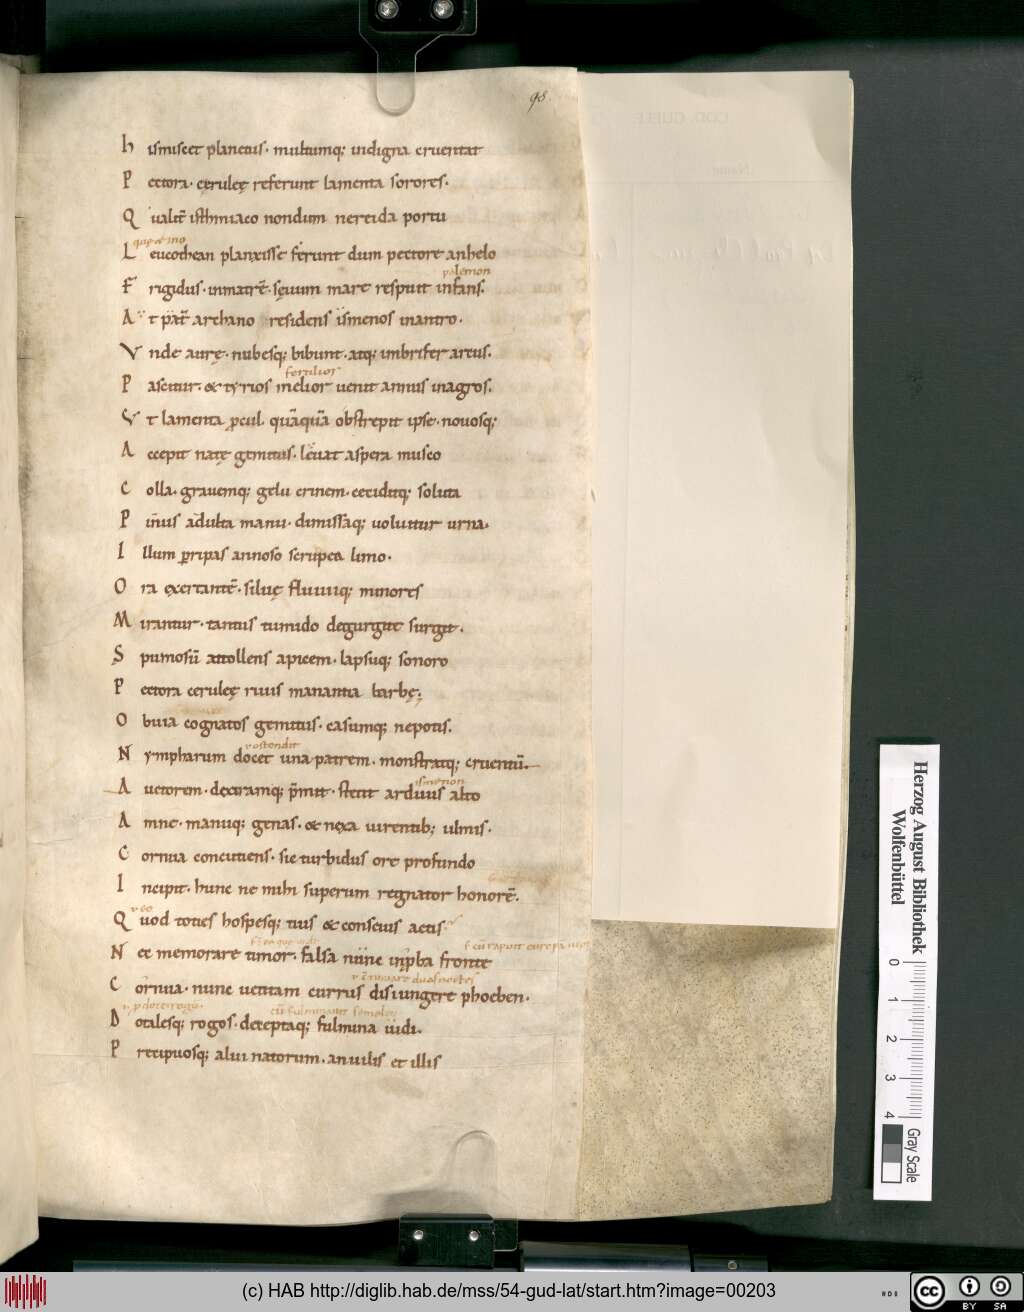 98.
h ismiscet planctus. multumq; indigna cruentat
P ectora. cęrulęę referunt lamenta sorores.
Q ualit̄ isthmiaco nondum nereida portu
L eucothean planxisse ferunt dum pectore anhelo
palemon
F rigidus. inmatrē. sęuum mare respuit infans.
A t pat̄ archano residens ismenos inantro.
V nde aurę. nubesq; bibunt. atq; imbrifer arcus.
fertilior
P ascitur. & tyrios melior uenit annus inagros.
V t lamenta ꝓcul. quāquā obstrepit ipse. nouosq;
A ccepit natę gemitus. leuat aspera musco
C olla. grauemq; gelu crinem. ceciditq; soluta
P inus adulta manu. dimissaq; uoluitur urna.
I llum ꝑripas annoso scrupea limo.
O ra exertantē. siluę fluuiiq; minores
M irantur. tantus tumido degurgite surgit.
S pumosū attollens apicem. lapsuq; sonoro
P ectora cerulęę riuis manantia barbę;
O buia cognatos gemitus. casumq; nepotis.
ostendit
N ympharum docet una patrem. monstratq; cruentū.
ismenon
A uctorem. dextramq; p̄mit. stetit arduus alto
A mne. manuq; genas. & nexa uirentib; ulmis.
C ornua concutiens. sic turbidus ore profundo
I ncipit. hunc ne mihi superum regnator honorē.
Q uod toties hospesq; tuis & conscius actis
N ec memorare timor. falsa nūnc īꝓba fronte
C ornua. nunc uetitam currus disiungere phoeben.
D otalesq; rogos. deceptaq; fulmina uidi.
P recipuosq; alui natorum. an uilis et illis
Herzog August Bibliothek
Wolfenbüttel
0 1 2 3 4
Gray Scale
(c) HAB http://diglib.hab.de/mss/54-gud-lat/start.htm?image=00203
cc BY SA